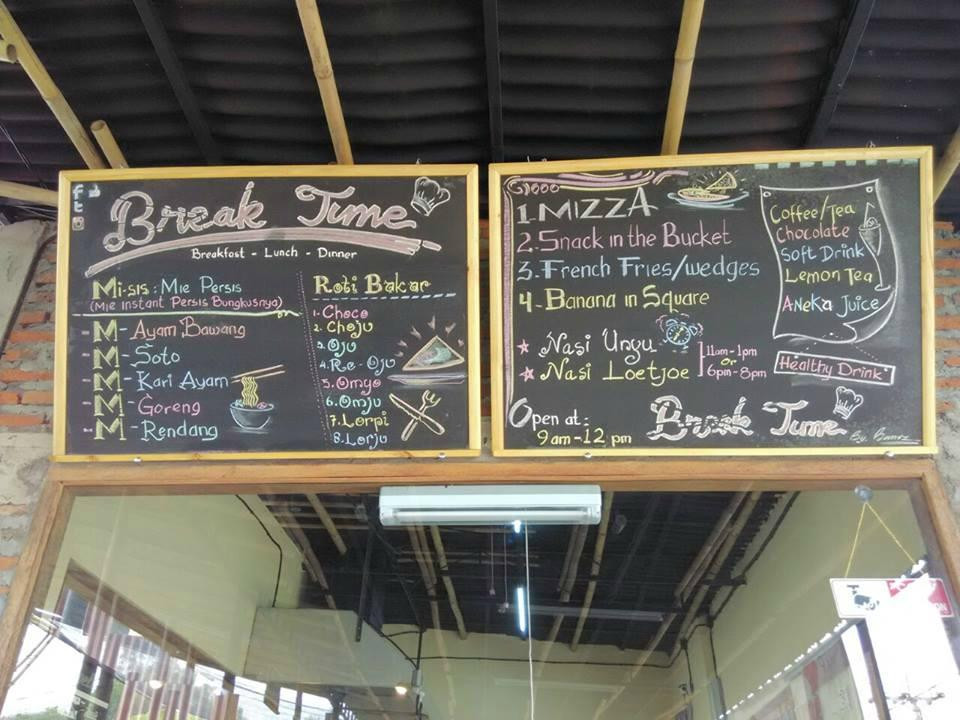 Break Time
Breakfast - Lunch - Dinner
Mi-sis : Mie Persis
(Mie Instant Persis Bungkusnya)
- M - Ayam Bawang
- M - Soto
- M - Kari Ayam
- M - Goreng
- M - Rendang
Roti Bakar
1. Choco
2. Choju
3. Oju
4. Re-Oju
5. Omyo
6. Omju
7. Lorpi
8. Lorju
1. MIZZA
2. Snack in the Bucket
3. French Fries/wedges
4 - Banana in Square
Nasi Ungu
Nasi Loetjoe
11am - 1pm
or
6pm - 8pm
Open at :
9 am - 12 pm
Coffee/Tea
Chocolate
Soft Drink
Lemon Tea
Aneka Juice
Healthy Drink
Break Time